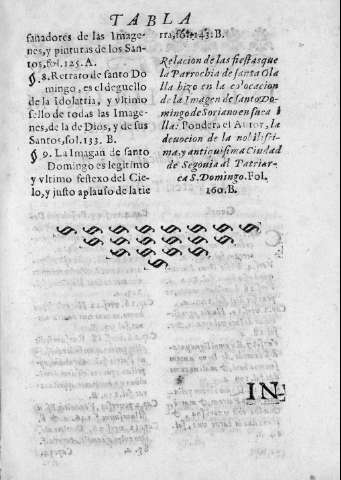 TABLA
fanadores de las Image-
nes, y pinturas de los San-
tos, fol. 125. A.
§. 8. Retrato de santo Do
mingo, es el deguello
de la Idolatria, y vltimo
sello de todas las Image-
nes, de la de Dios, y de sus
Santos, fol. 133. B.
§ 9. La Imagan de santo
Domingo es legitimo
y vltimo festexo del Cie-
lo, y justo aplauso de la tie
rra, fol. 143. B.
Relacion de las fiestas que
la Parrochia de santa Ola
lla hizo en la colocacion
de la Imagen de santo Do-
mingo de Soriano en su ca
lla: Pondera el Autor, la
deuocion de la nobilissi-
ma, y antiquissima Ciudad
de Segouia al Patriar-
ca S. Domingo. Fol.
160. B.
IN-